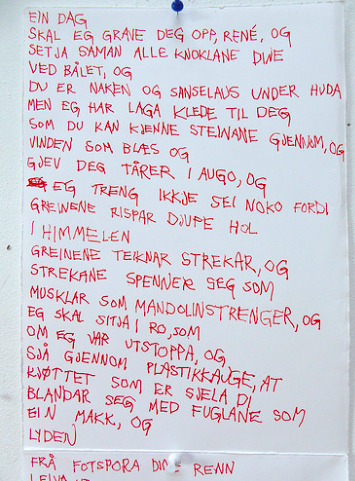 EIN DAG
SKAL EG GRAVE DEG OPP, RENÉ, OG
SETJA SAMAN ALLE KNOKLANE DINE
VED BÅLET, OG
DU ER NAKEN OG SANSELAUS UNDER HUDA
MEN EG HAR LAGA KLEDE TIL DEG
SOM DU KAN KJENNE STEINANE GJENNOM, OG
VINDEN SOM BLÆS OG
GJEV DEG TÅRER I AUGO, OG
EG TRENG IKKJE SEI NOKO FORDI
GREINENE RISPAR DJUPE HOL
I HIMMELEN
GREINENE TEIKNAR STREKAR, OG
STREKANE SPENNER SEG SOM
MUSKLAR SOM MANDOLINSTRENGER, OG
EG SKAL SITJA I RO, SOM
OM EG VAR UTSTOPPA, OG
SJÅ GJENNOM PLASTIKKAUGE, AT
KJØTTET SOM ER SJELA DI
BLANDAR SEG MED FUGLANE SOM
EIN MAKK, OG
LYDEN
FRÅ FOTSPORA DINE RENN